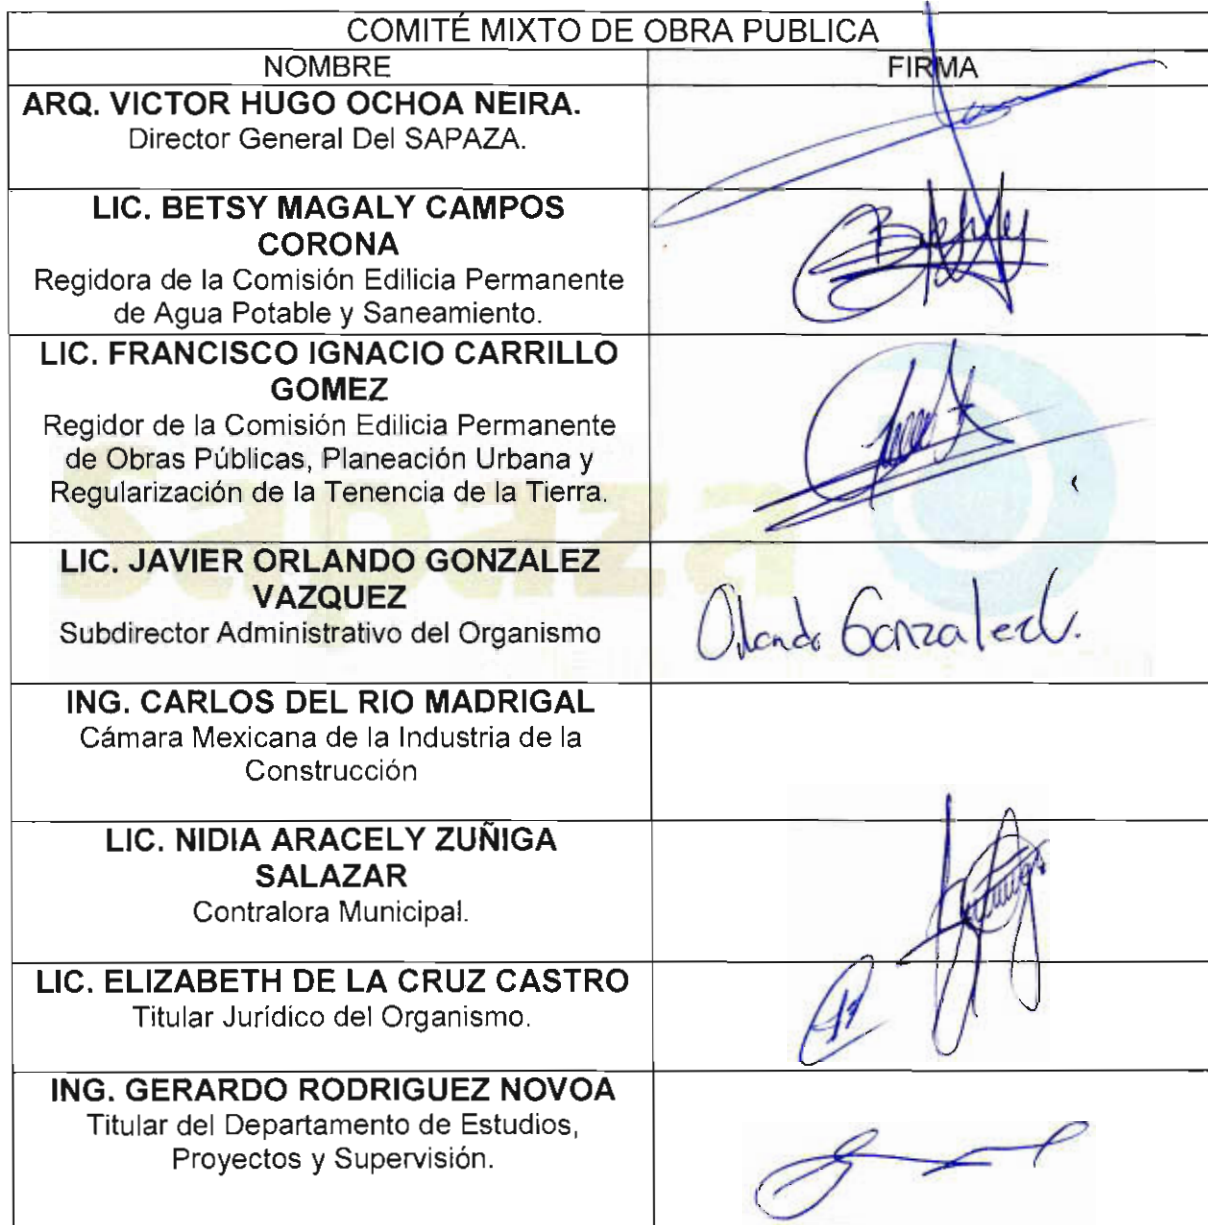 COMITÉ MIXTO DE OBRA PUBLICA
NOMBRE FIRMA
ARQ. VICTOR HUGO OCHOA NEIRA.
Director General Del SAPAZA.
LIC. BETSY MAGALY CAMPOS
CORONA
Regidora de la Comisión Edilicia Permanente
de Agua Potable y Saneamiento.
LIC. FRANCISCO IGNACIO CARRILLO
GOMEZ
Regidor de la Comisión Edilicia Permanente
de Obras Públicas, Planeación Urbana y
Regularización de la Tenencia de la Tierra.
Sapaza
LIC. JAVIER ORLANDO GONZALEZ
VAZQUEZ
Subdirector Administrativo del Organismo
Orlando Gonzalez V.
ING. CARLOS DEL RIO MADRIGAL
Cámara Mexicana de la Industria de la
Construcción
LIC. NIDIA ARACELY ZUÑIGA
SALAZAR
Contralora Municipal.
LIC. ELIZABETH DE LA CRUZ CASTRO
Titular Jurídico del Organismo.
ING. GERARDO RODRIGUEZ NOVOA
Titular del Departamento de Estudios,
Proyectos y Supervisión.